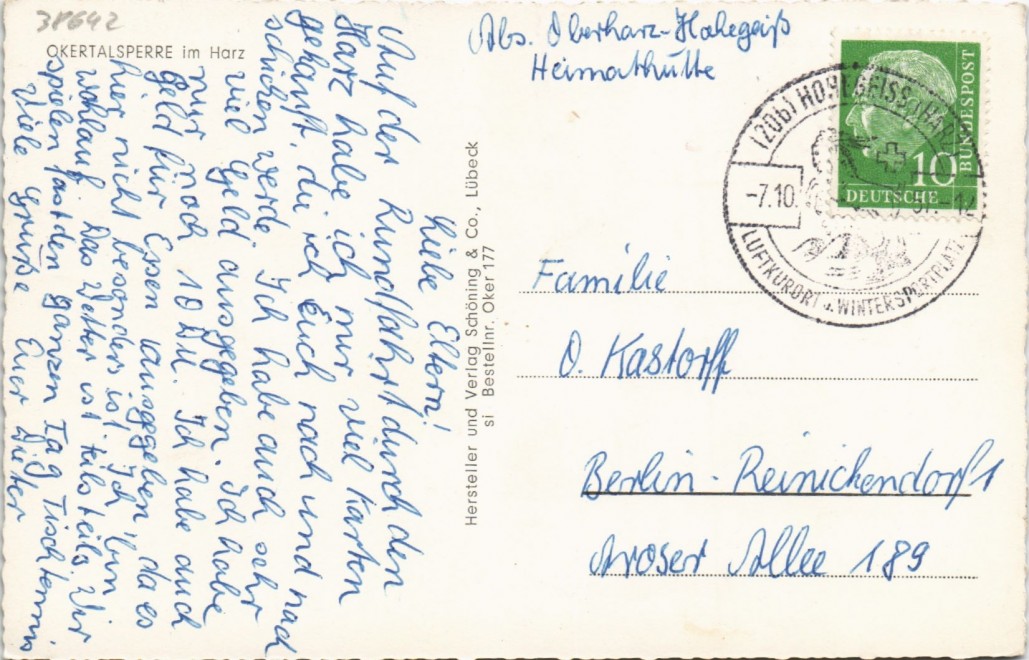 38642
OKERTALSPERRE im Harz
Liebe Eltern!
Auf der Rundfahrt durch den
Harz habe ich mir viel Karten
gekauft, die ich Euch nach und nach
schicken werde. Ich habe auch sehr
viel Geld ausgegeben. Ich habe
nur noch 10 DM. Ich habe auch
Geld für Essen ausgegeben, da es
hier nicht besonders ist. Ich bin
wohlauf. Das Wetter ist teils teils. Wir
spielen fast den ganzen Tag Tischtennis
Viele Grüße Euer Dieter
Hersteller und Verlag Schöning & Co., Lübeck
si Bestellnr. Oker 177
Abs. Oberharz-Hohegeiß
Heimathütte
(20b) HOHEGEISS (HARZ)
-7.10.
LUFTKURORT u. WINTERSPORTPLATZ
10
DEUTSCHE
BUNDESPOST
Familie
O. Kastorff
Berlin-Reinickendorf 1
Aroser Allee 189